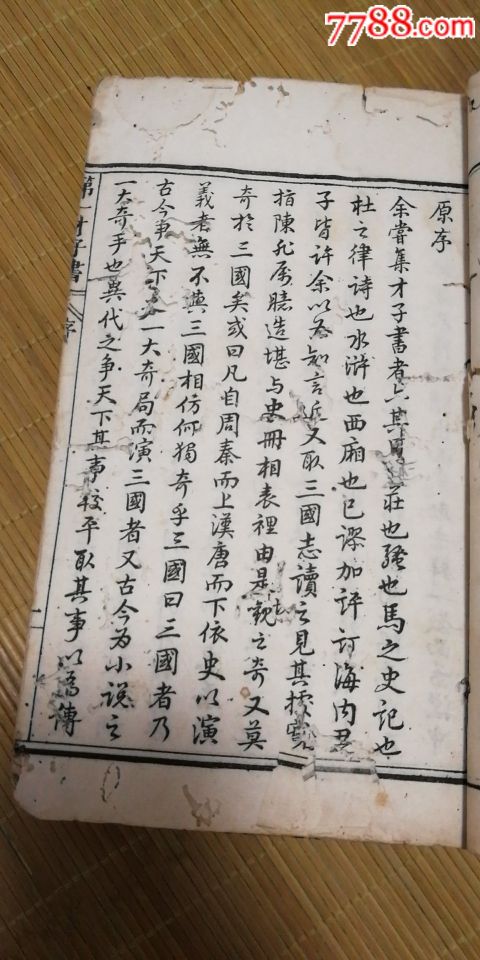 7788.com
原序
余嘗集才子書者六其目莊也騷也馬之史記也
杜之律詩也水滸也西廂也已謬加評訂海内君
子皆許余以為知言近又取三國志讀之見其據實
指陳非屬臆造堪與史冊相表裡由是觀之奇又莫
奇於三國矣或曰凡自周秦而上漢唐而下依史以演
義者無不與三國相仿何獨奇乎三國曰三國者乃
古今爭天下之一大奇局而演三國者又古今為小說之
一大奇手也異代之爭天下其事較平取其事以為傳
第一才子書 序 一